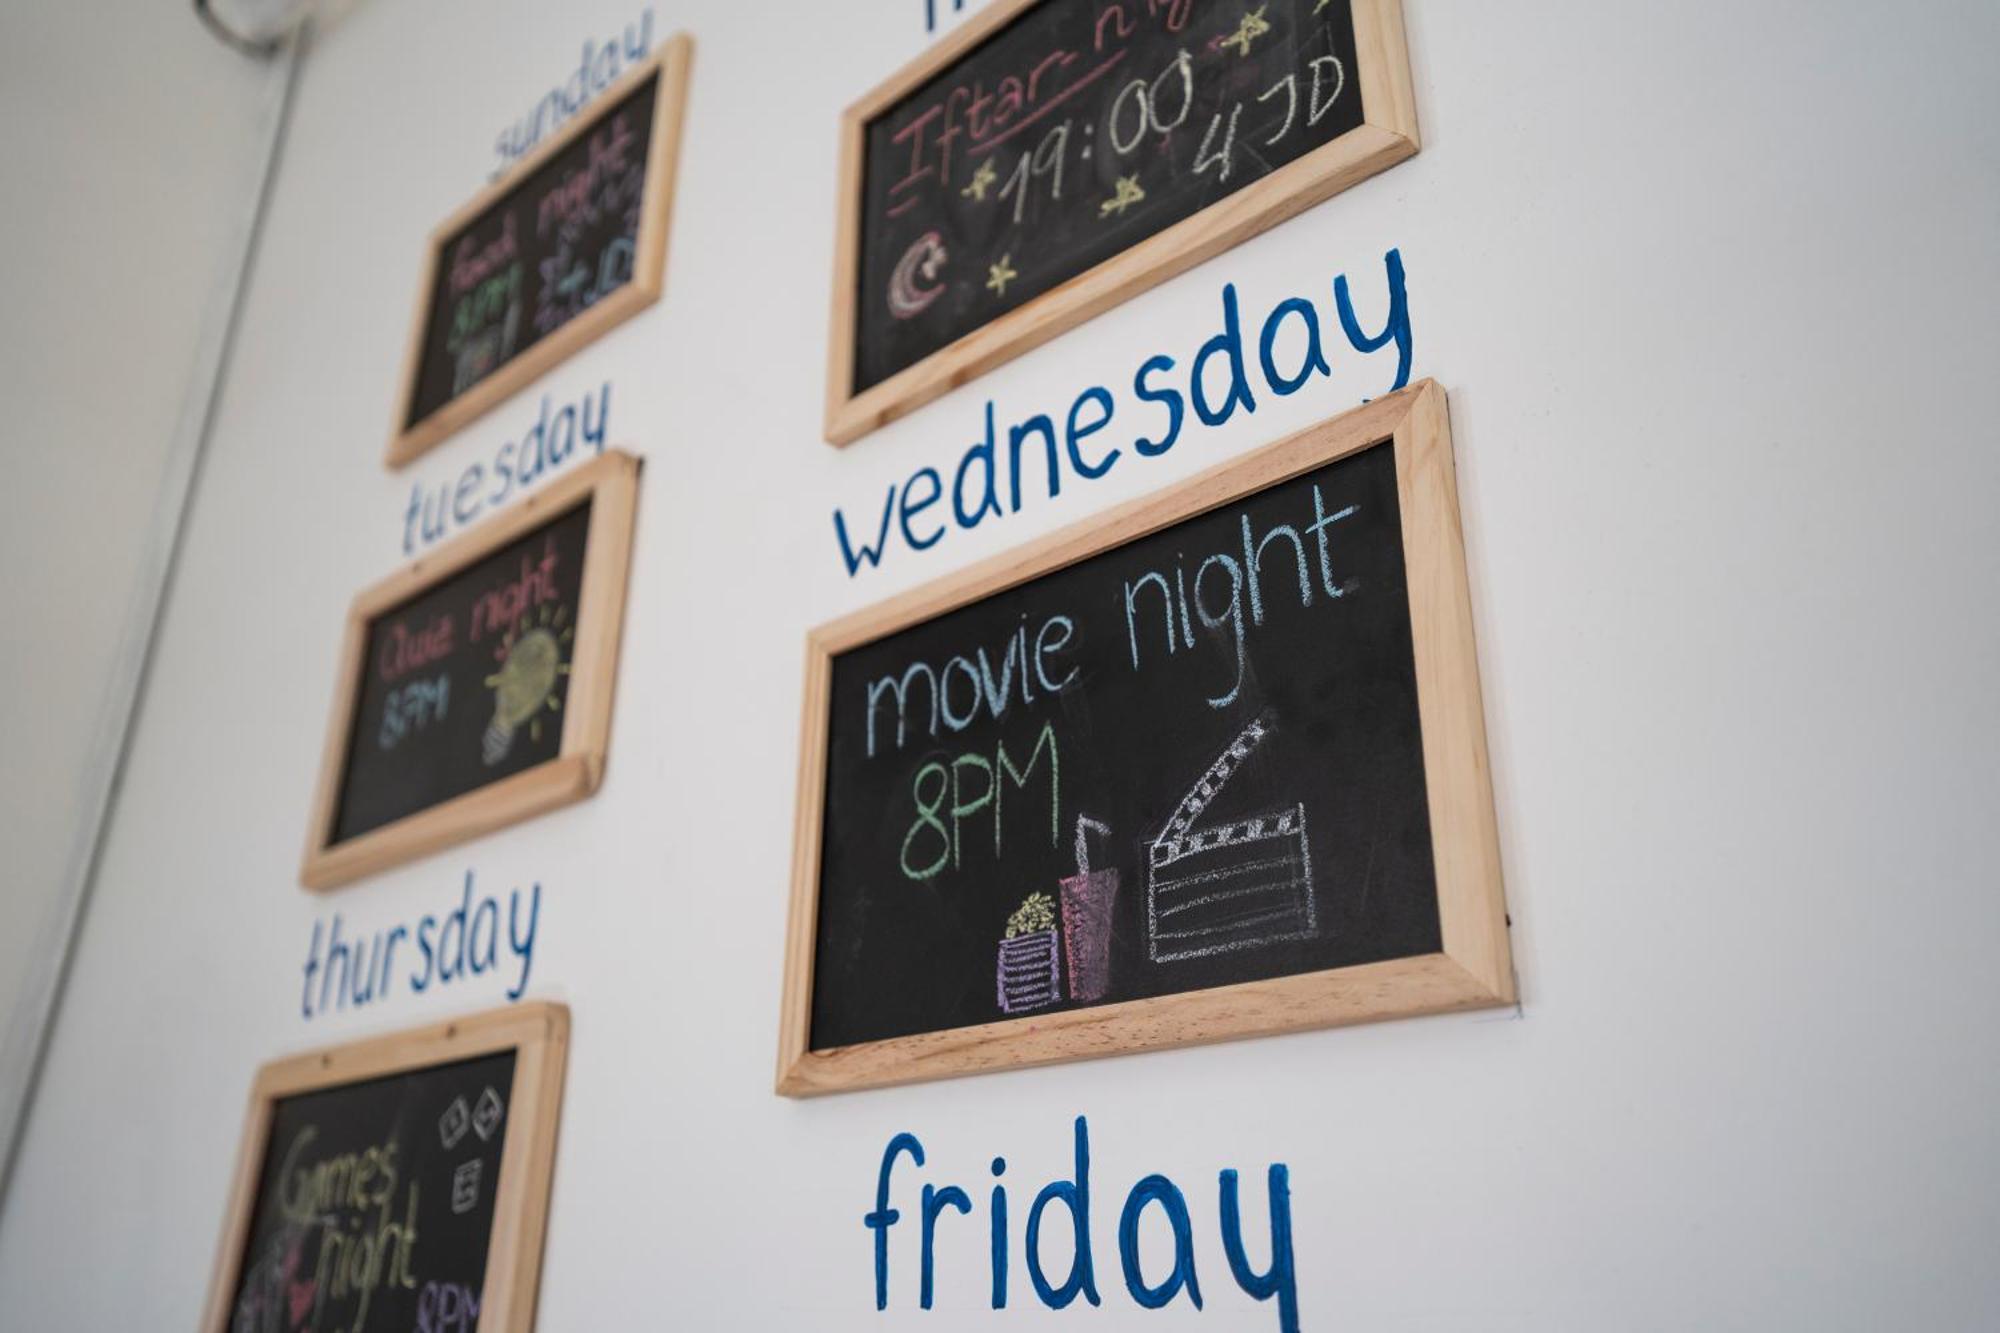 sunday
Food night
8PM
4 JD
Iftar-nig
19:00
4 JD
tuesday
Quiz night
8PM
wednesday
movie night
8PM
thursday
Games
night
8PM
friday